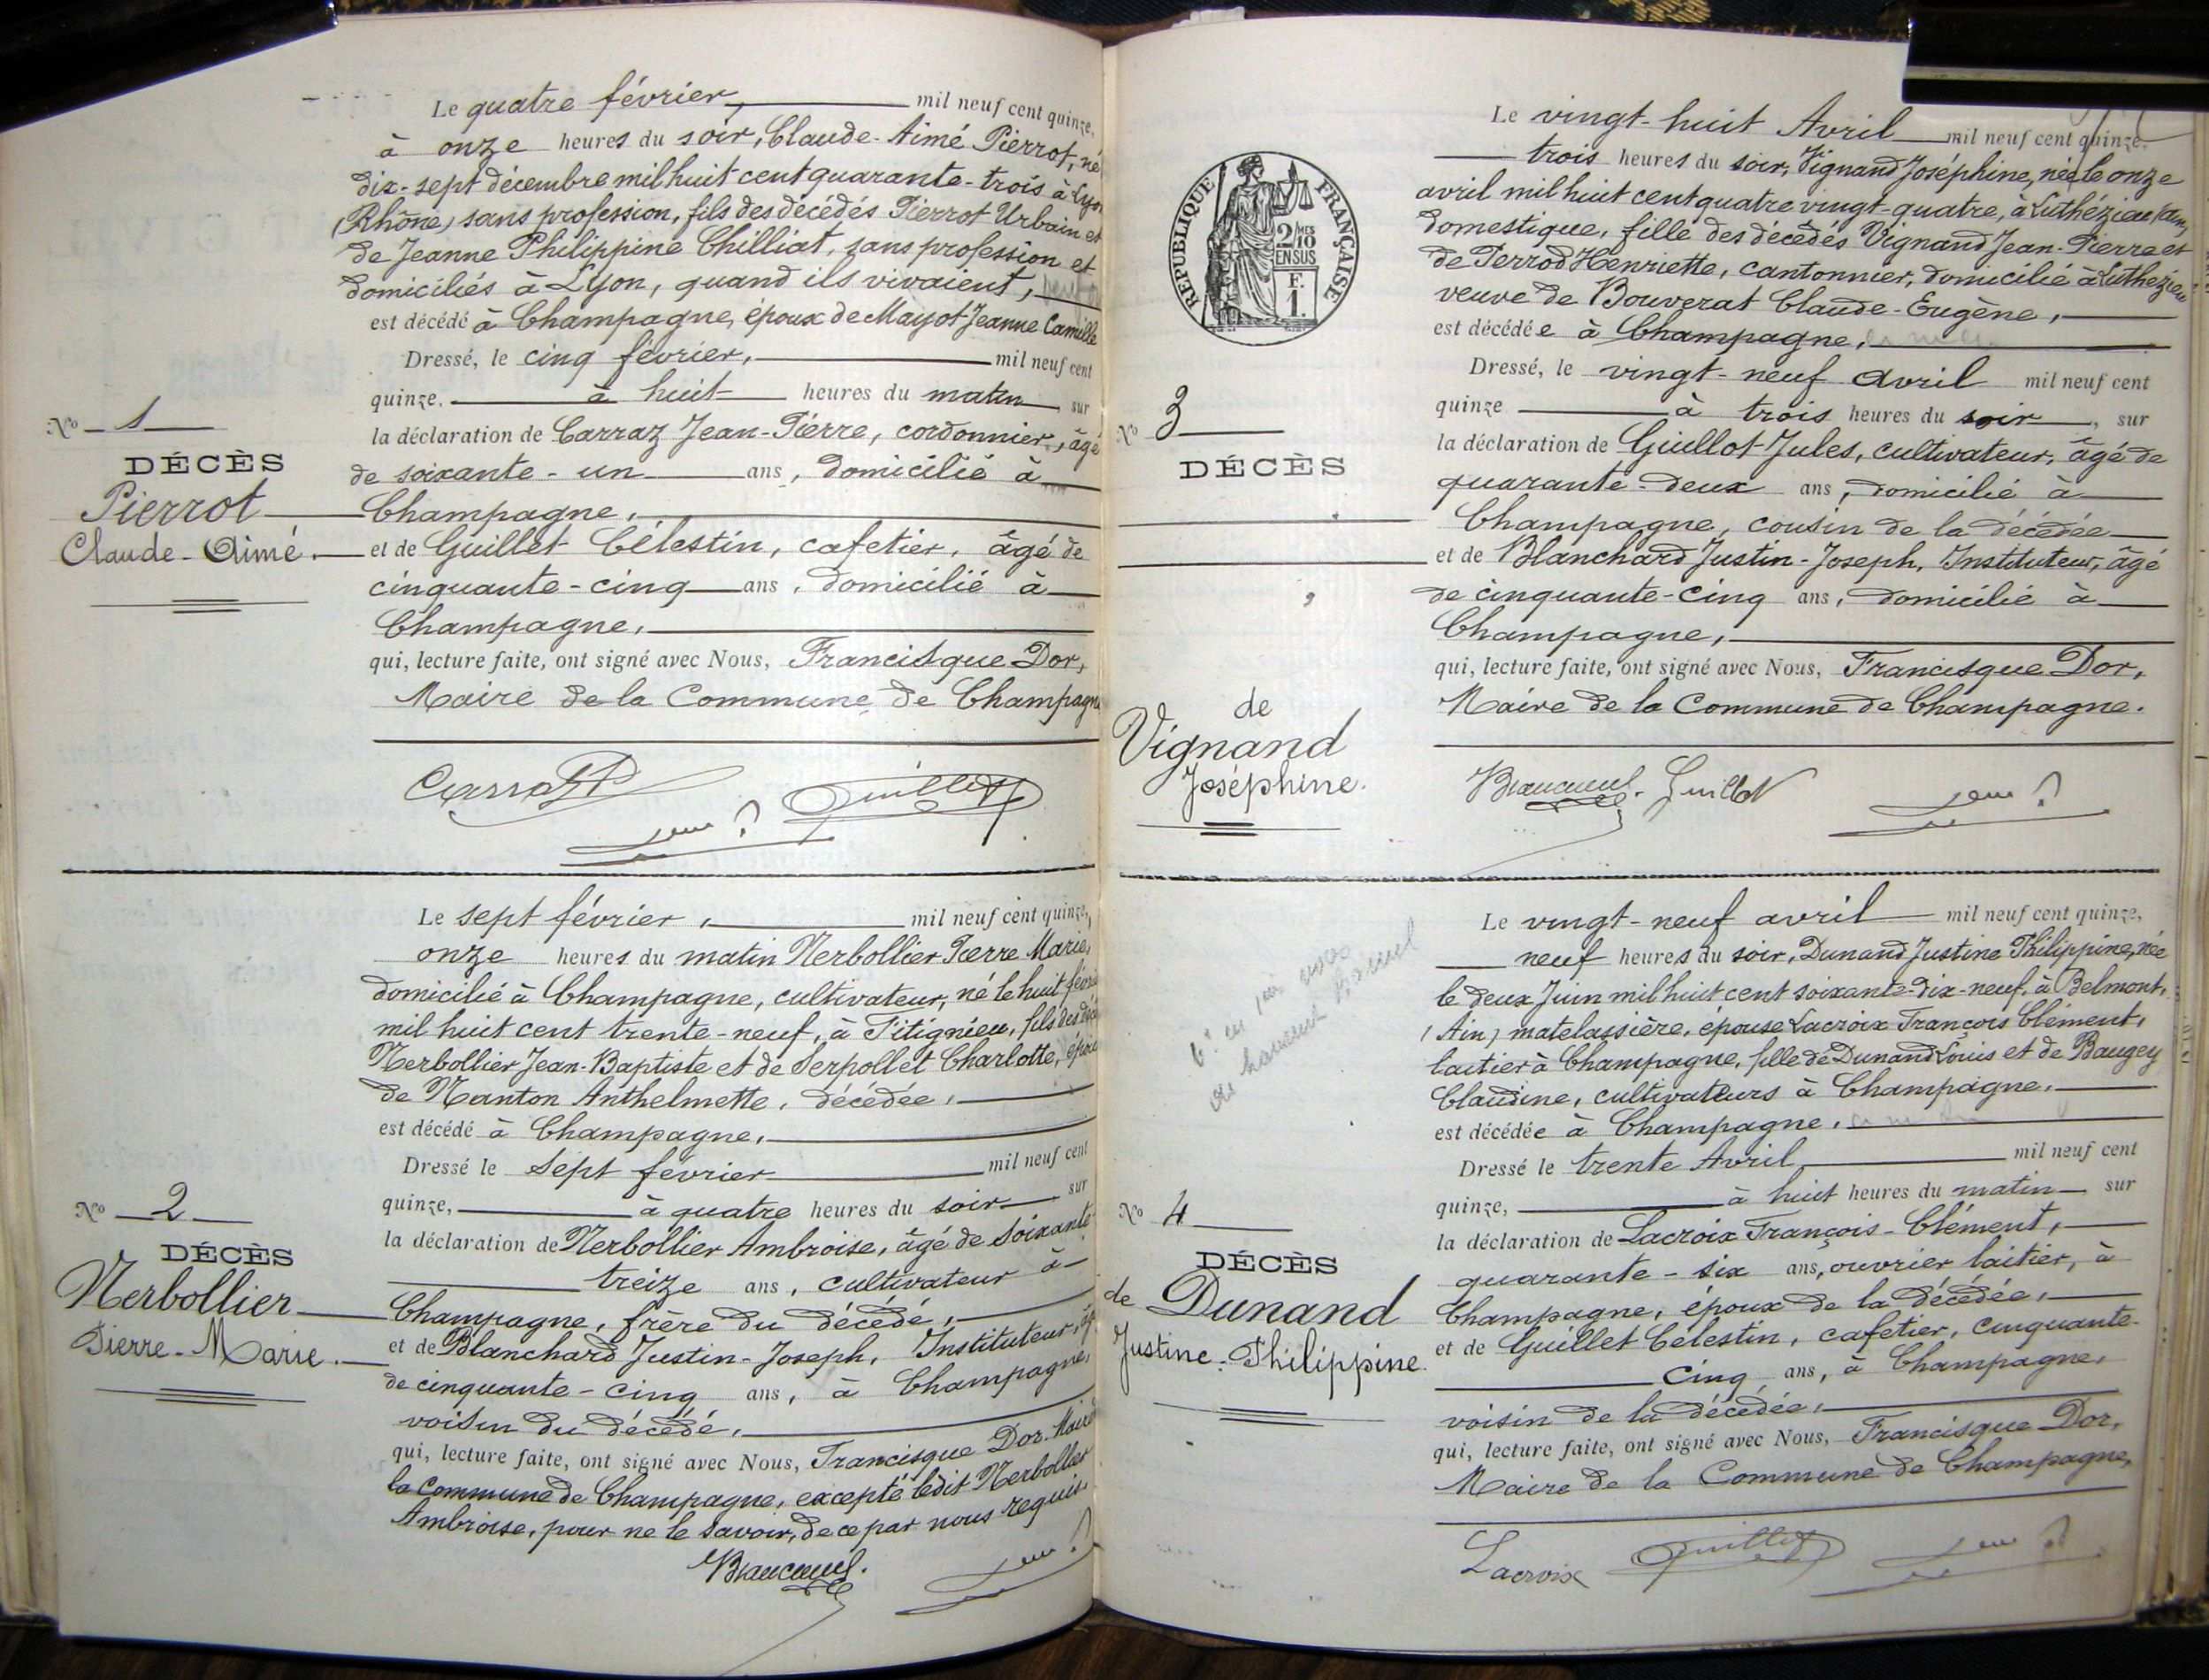 Le quatre février, mil neuf cent quinze,
à onze heures du soir, Claude-Aimé Pierrot, né
dix-sept décembre mil huit cent quarante-trois à Lyon
(Rhône) sans profession, fils des décédés Pierrot Urbain et
de Jeanne Philippine Chilliat, sans profession et
domiciliés à Lyon, quand ils vivaient,
est décédé à Champagne, époux de Mayot Jeanne Camille
Dressé, le cinq février, mil neuf cent
quinze, à huit heures du matin, sur
la déclaration de Carraz Jean-Pierre, cordonnier, âgé
de soixante-un ans, domicilié à
Champagne,
et de Guillet Célestin, cafetier, âgé de
cinquante-cinq ans, domicilié à
Champagne,
qui, lecture faite, ont signé avec Nous, Francisque Dor,
Maire de la Commune de Champagne
No 1
DÉCÈS
Pierrot
Claude-Aimé.
Carraz JP
Guillet
Le sept février, mil neuf cent quinze,
onze heures du matin Nerbollier Pierre Marie,
domicilié à Champagne, cultivateur, né le huit février
mil huit cent trente-neuf, à Titignieu, fils des
Nerbollier Jean-Baptiste et de Serpollet Charlotte, époux
de Nanton Anthelmette, décédée,
est décédé à Champagne,
Dressé le sept février mil neuf cent
quinze, à quatre heures du soir sur
la déclaration de Nerbollier Ambroise, âgé de soixante-
treize ans, cultivateur à
Champagne, frère du décédé,
et de Blanchard Justin-Joseph, Instituteur, âgé
de cinquante-cinq ans, à Champagne,
voisin du décédé,
qui, lecture faite, ont signé avec Nous, Francisque Dor. Maire
la Commune de Champagne, excepté ledit Nerbollier
Ambroise, pour ne le savoir, de ce par nous requis.
No 2
DÉCÈS
Nerbollier
Pierre-Marie.
Blanchard.
RÉPUBLIQUE FRANÇAISE
2/10 MES
EN SUS
F.
1.
Le vingt-huit Avril mil neuf cent quinze.
trois heures du soir, Vignand Joséphine, née le onze
avril mil huit cent quatre vingt-quatre, à Luthézieu (Ain,
domestique, fille des décédés Vignand Jean-Pierre et
de Perrod Henriette, cantonnier, domicilié à Luthézieu
veuve de Bouverat Claude-Eugène,
est décédée à Champagne,
Dressé, le vingt-neuf avril mil neuf cent
quinze à trois heures du soir, sur
la déclaration de Guillot Jules, cultivateur, âgé de
quarante-deux ans, domicilié à
Champagne, cousin de la décédée
et de Blanchard Justin-Joseph, Instituteur, âgé
de cinquante-cinq ans, domicilié à
Champagne,
qui, lecture faite, ont signé avec Nous, Francisque Dor,
Maire de la Commune de Champagne.
No 3
DÉCÈS
de
Vignand
Joséphine.
Blanchard. Guillot
Le vingt-neuf avril mil neuf cent quinze,
neuf heures du soir, Dunand Justine Philippine, née
le deux Juin mil huit cent soixante-dix-neuf, à Belmont,
(Ain) matelassière, épouse Lacroix François Clément,
laitier à Champagne, fille de Dunand Louis et de Baugey
Claudine, cultivateurs à Champagne,
est décédée à Champagne,
Dressé le trente Avril mil neuf cent
quinze, à huit heures du matin sur
la déclaration de Lacroix François-Clément,
quarante-six ans, ouvrier laitier, à
Champagne, époux de la décédée,
et de Guillet Célestin, cafetier, cinquante-
cinq ans, à Champagne,
voisin de la décédée,
qui, lecture faite, ont signé avec Nous, Francisque Dor,
Maire de la Commune de Champagne,
No 4
DÉCÈS
de Dunand
Justine-Philippine.
Lacroix
Guillet